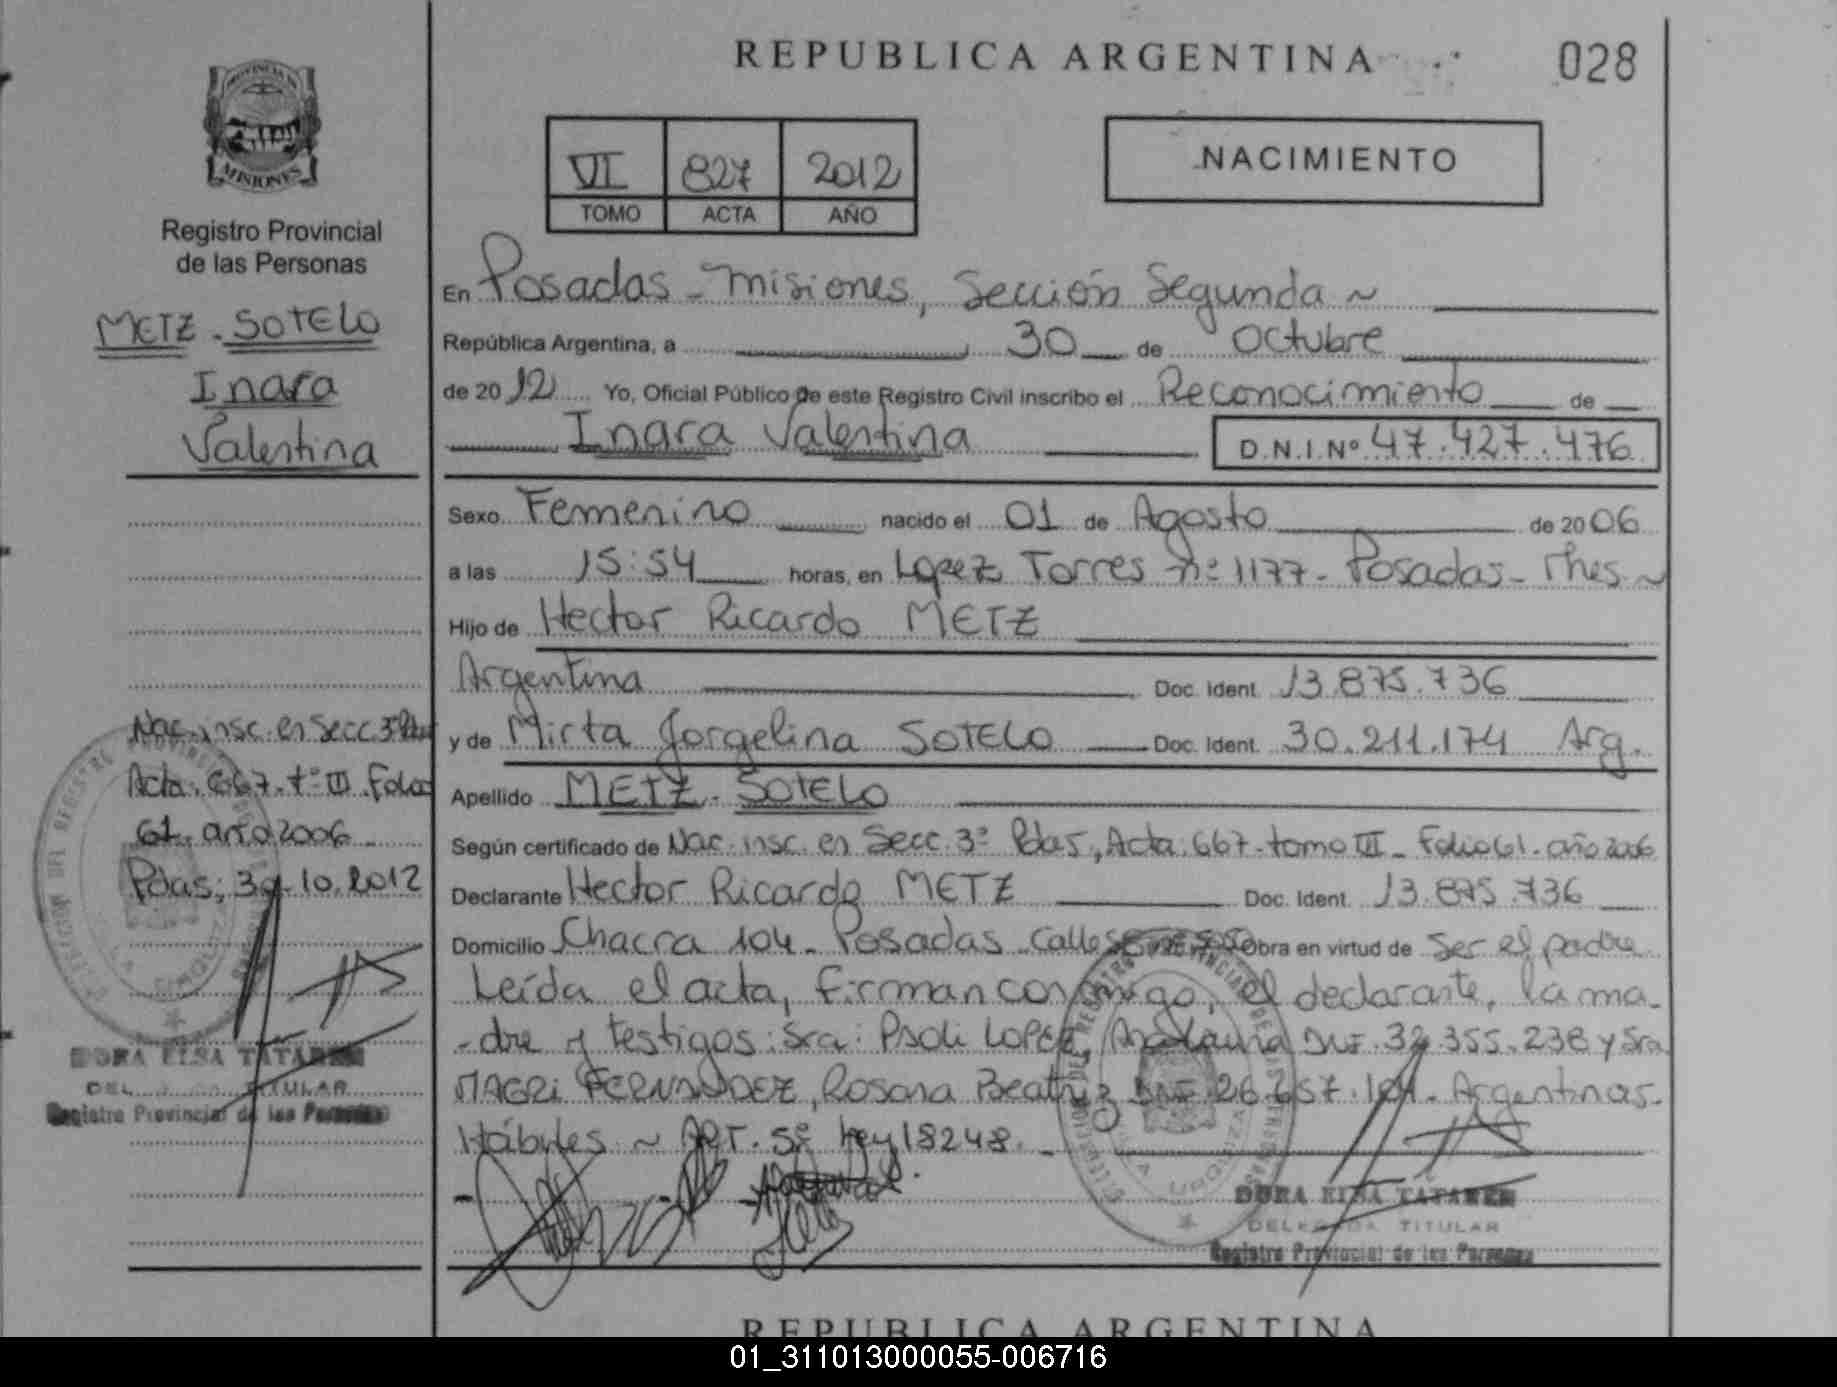 REPUBLICA ARGENTINA
028
PROVINCIA DE
MISIONES
VI 827 2012
TOMO ACTA AÑO
NACIMIENTO
Registro Provincial
de las Personas
METZ - SOTELO
Inara
Valentina
En Posadas - Misiones, Sección Segunda ~
República Argentina, a 30 de Octubre
de 2012 Yo, Oficial Público de este Registro Civil inscribo el Reconocimiento de
Inara Valentina D.N.I.Nº 47.427.476
Sexo Femenino nacido el 01 de Agosto de 2006
a las 15:54 horas, en Lopez Torres nº 1177 - Posadas - Mnes ~
Hijo de Hector Ricardo METZ
Argentina Doc. Ident. 13.875.736
y de Mirta Jorgelina SOTELO Doc. Ident. 30.211.174 Arg.
Apellido METZ - SOTELO
Según certificado de Nac. insc. en Secc. 3º Pdas, Acta: 667 - tomo III - Folio 61 - año 2006
Declarante Hector Ricardo METZ Doc. Ident. 13.875.736
Domicilio Chacra 104 - Posadas Calle Obra en virtud de Ser el padre
Leída el acta, firman conmigo, el declarante, la ma-
-dre y testigos: Sra: LOPEZ, DNI: 32.355.238 y Sra
MAGRI FERNANDEZ, Rosana Beatriz DNI 26.657.101 - Argentinas -
Hábiles ~ ART. 5º Ley 18248.
Nac. insc. en Secc. 3º Pdas
Acta: 667 - tº III - Folio
61 - año 2006
Pdas; 30.10.2012
DORA ELSA
TITULAR
Registro Provincial de las Personas
DORA ELSA
DELEGADA TITULAR
Registro Provincial de las Personas
REPUBLICA ARGENTINA
01_311013000055-006716